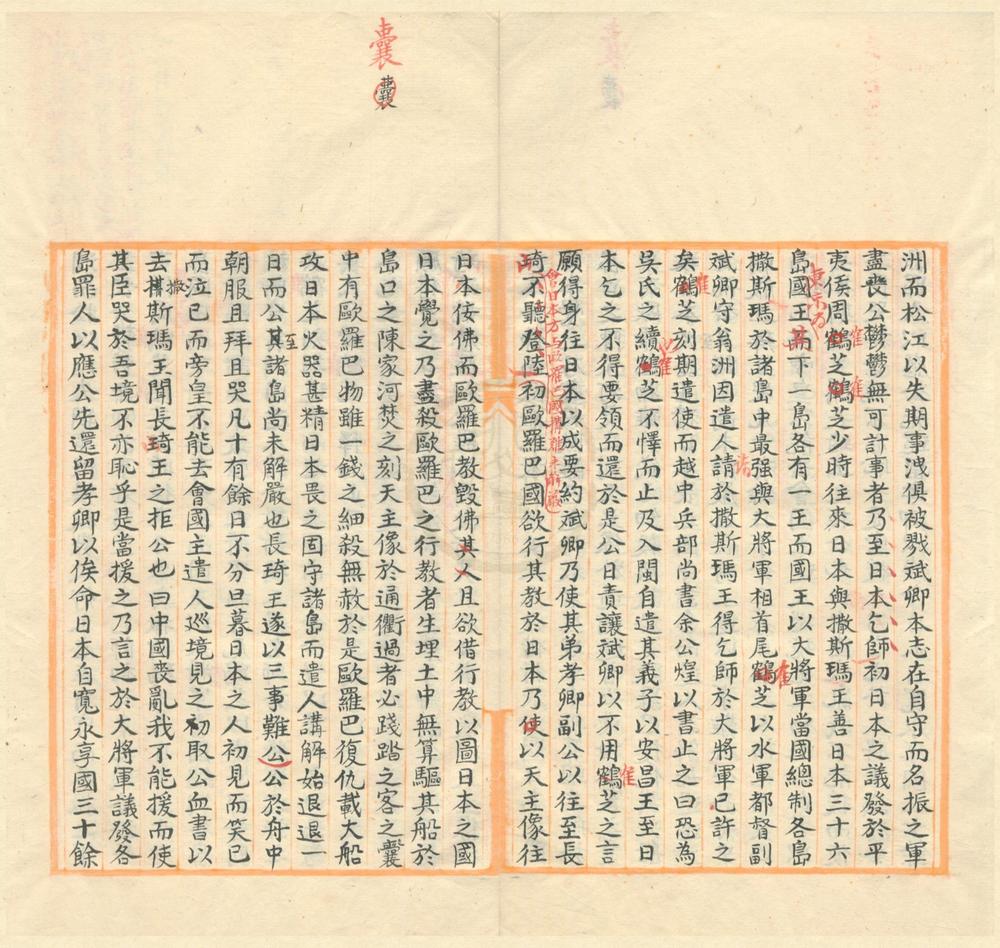 囊
囊
洲而松江以失期事洩俱被戮斌卿本志在自守而名振之軍
盡喪公鬱鬱無可計事者乃至日本乞師初日本之議發於平
夷侯周鶴芝鶴芝少時往來日本與撒斯瑪王善日本三十六
島國王高下一島各有一王而國王以大將軍當國總制各島
撒斯瑪於諸島中最强與大將軍相首尾鶴芝以水軍都督副
斌卿守翁洲因遣人請於撒斯瑪王得乞師於大將軍已許之
矣鶴芝刻期遣使而越中兵部尚書余公煌以書止之曰恐為
吳氏之續鶴芝不懌而止及入閩自遣其義子以安昌王至日
本乞之不得要領而還於是公日責讓斌卿以不用鶴芝之言
願得身往日本以成要約斌卿乃使其弟孝卿副公以往至長
琦不聽登陸初歐羅巴國欲行其教於日本乃使以天主像往
會日本方與歐羅巴國搆難未解嚴
日本佞佛而歐羅巴教毀佛其人且欲借行教以圖日本之國
日本覺之乃盡殺歐羅巴之行教者生埋土中無算驅其船於
島口之陳家河焚之刻天主像於通衢過者必踐踏之客之囊
中有歐羅巴物雖一錢之細殺無赦於是歐羅巴復仇載大船
攻日本火器甚精日本畏之固守諸島而遣人講解始退退一
日而公至其諸島尚未解嚴也長琦王遂以三事難公公於舟中
朝服且拜且哭凡十有餘日不分旦暮日本之人初見而笑已
而泣已而旁皇不能去會國主遣人巡境見之初取公血書以
去撒斯瑪王聞長琦王之拒公也曰中國喪亂我不能援而使
其臣哭於吾境不亦恥乎是當援之乃言之於大將軍議發各
島罪人以應公先還留孝卿以俟命日本自寬永享國三十餘